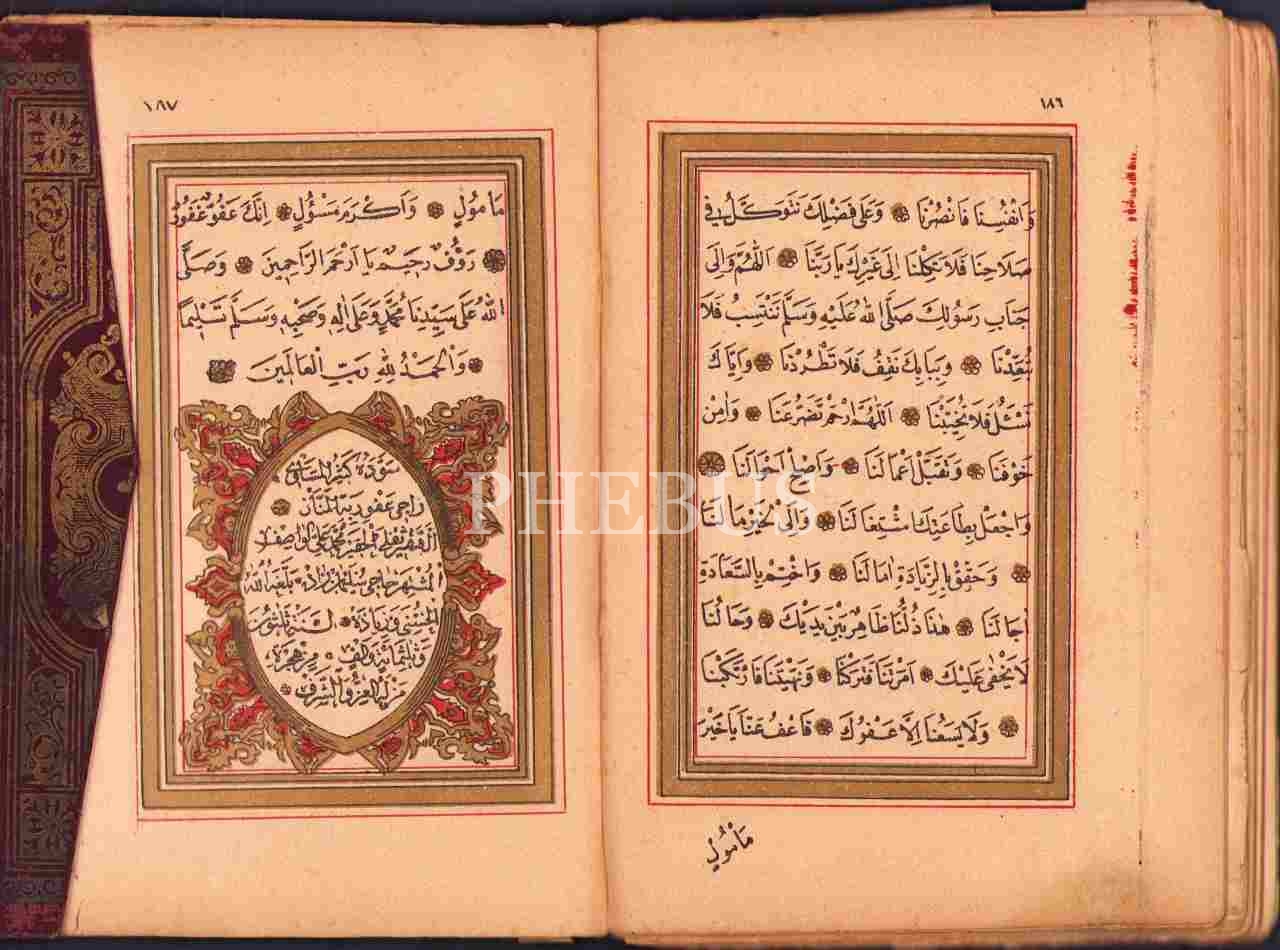 ١٨٦
وَانْفُسِنَا فَانْصُرْنَا وَعَلٰى فَضْلِكَ نَتَوَكَّلُ فِي
صَلَاحِنَا فَلَا تَكِلْنَا اِلٰى غَيْرِكَ يَا رَبَّنَا اَللّٰهُمَّ وَاِلٰى
جَنَابِ رَسُولِكَ صَلَّى اللهُ عَلَيْهِ وَسَلَّمَ نَنْتَسِبُ فَلَا
تُبَعِّدْنَا وَبِبَابِكَ نَقِفُ فَلَا تَطْرُدْنَا وَاِيَّاكَ
نَسْئَلُ فَلَا تُخَيِّبْنَا اَللّٰهُمَّ ارْحَمْ تَضَرُّعَنَا وَاٰمِنْ
خَوْفَنَا وَتَقَبَّلْ اَعْمَالَنَا وَاَصْلِحْ اَحْوَالَنَا
وَاجْعَلْ بِطَاعَتِكَ اشْتِغَالَنَا وَاِلَى الْخَيْرِ مَاٰلَنَا
وَحَقِّقْ بِالزِّيَادَةِ اٰمَالَنَا وَاخْتِمْ بِالسَّعَادَةِ
اٰجَالَنَا هٰذَا ذُلُّنَا ظَاهِرٌ بَيْنَ يَدَيْكَ وَحَالُنَا
لَا يَخْفٰى عَلَيْكَ اَمَرْتَنَا فَتَرَكْنَا وَنَهَيْتَنَا فَارْتَكَبْنَا
وَلَا يَسَعُنَا اِلَّا عَفْوُكَ فَاعْفُ عَنَّا يَا خَيْرَ
مَأْمُولٍ
١٨٧
مَأْمُولٍ وَاَكْرَمَ مَسْؤُلٍ اِنَّكَ عَفُوٌّ غَفُورٌ
رَؤُفٌ رَحِيمٌ يَا اَرْحَمَ الرَّاحِمِينَ وَصَلَّى
اللهُ عَلٰى سَيِّدِنَا مُحَمَّدٍ وَعَلٰى اٰلِهِ وَصَحْبِهِ وَسَلَّمَ تَسْلِيمًا
وَالْحَمْدُ لِلّٰهِ رَبِّ الْعَالَمِينَ
سوده كثير المساوى
راجى عفو ربه المنان
الفقير محمد على الواصف
المشتهر بلغه الله
الحسنى وزيادة لسنة ثلث
وثلثمائة والف من هجرة
من له العز والشرف
PHEBUS